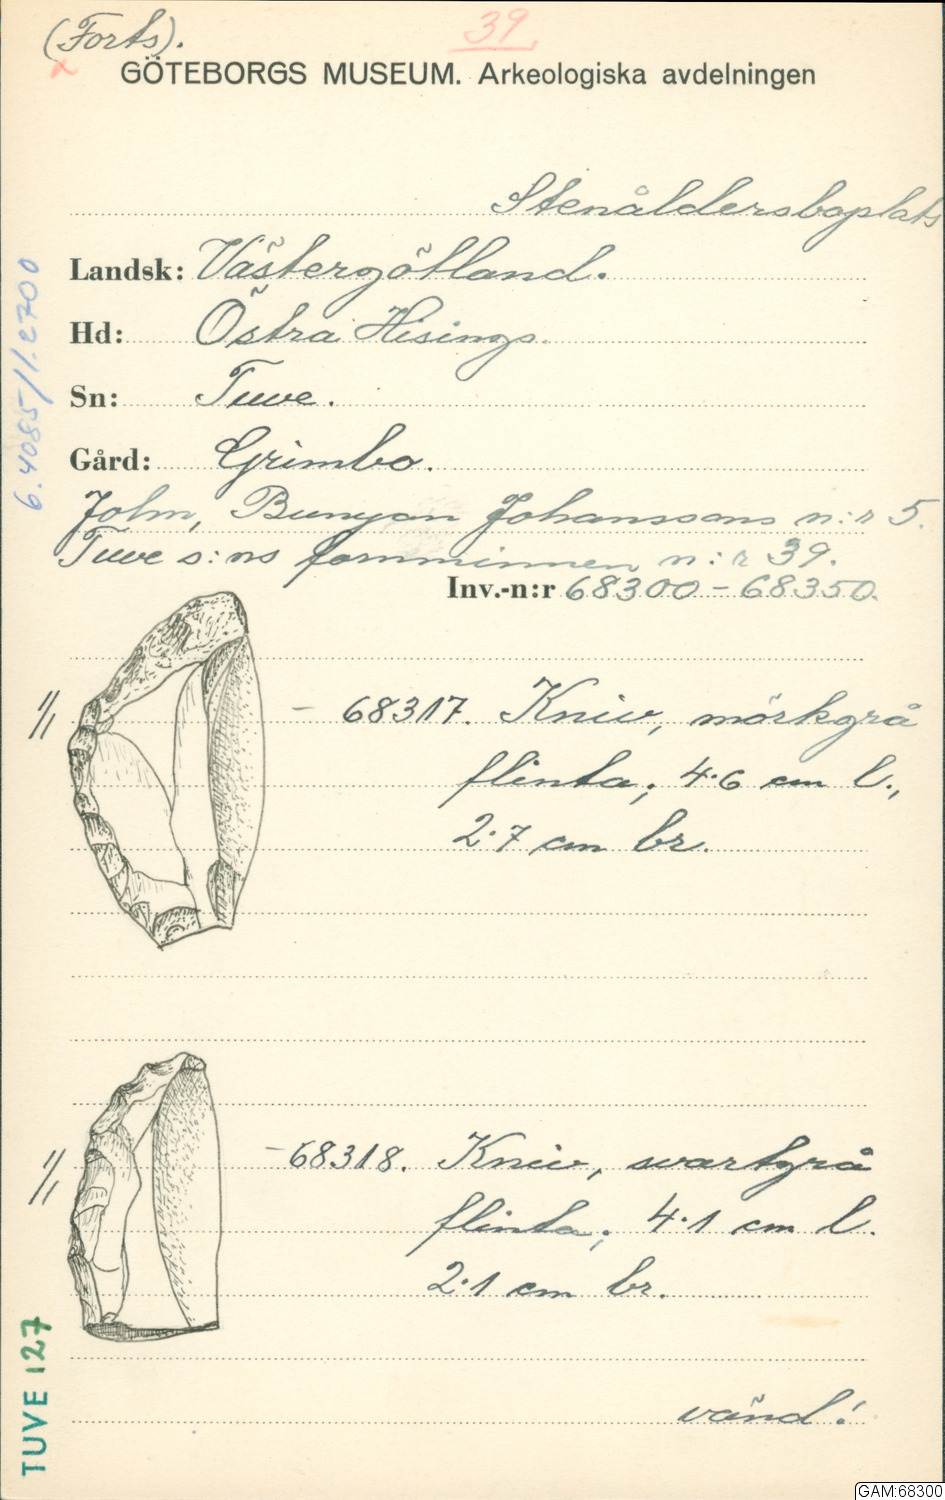 (Forts).
39.
GÖTEBORGS MUSEUM. Arkeologiska avdelningen
Stenåldersboplats
Landsk: Västergötland.
Hd: Östra Hisings.
Sn: Tuve.
Gård: Grimbo.
John, Bunyan Johanssons n:r 5.
Tuve s:ns fornminnen n:r 39.
Inv.-n:r 68300-68350.
1/1 - 68317. Kniv, mörkgrå
flinta; 4.6 cm l.,
2.7 cm br.
1/1 - 68318. Kniv, svartgrå
flinta; 4.1 cm l.
2.1 cm br.
vänd!
6.4085/1.2700
TUVE 127
GAM:68300